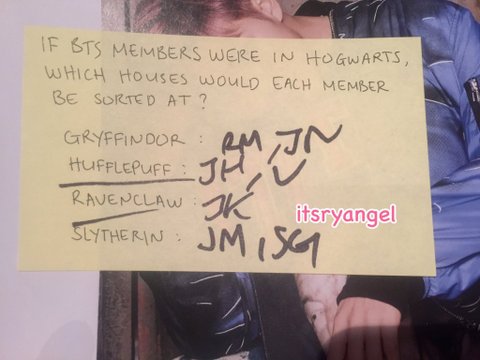 IF BTS MEMBERS WERE IN HOGWARTS,
WHICH HOUSES WOULD EACH MEMBER
BE SORTED AT?
GRYFFINDOR : RM, JN
HUFFLEPUFF : JH, V
RAVENCLAW : JK
SLYTHERIN : JM, SG
itsryangel